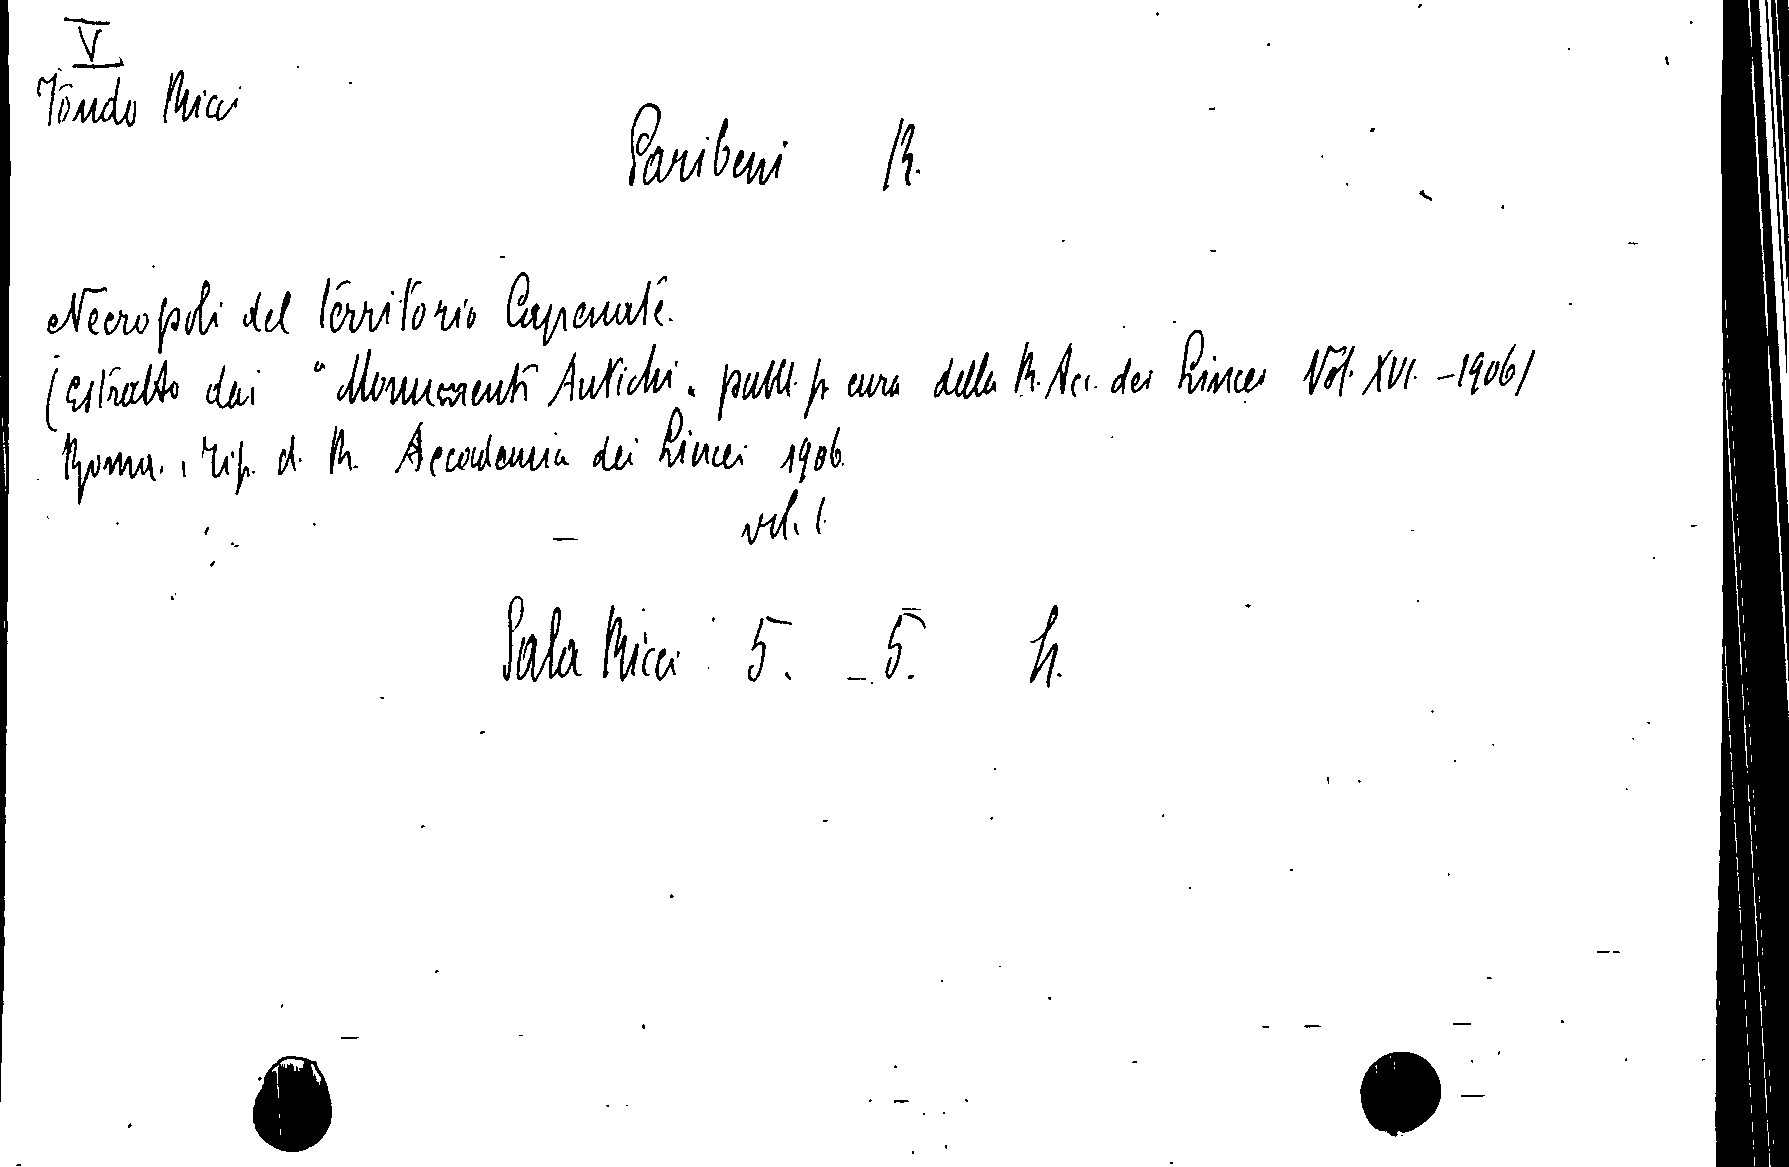 V
Fondo Ricci
Paribeni R.
Necropoli del territorio Capenate.
(estratto dai "Monumenti Antichi" pubbl. p. cura della R. Acc. dei Lincei Vol. XVI. - 1906)
Roma., Tip. d. R. Accademia dei Lincei 1906.
vol. 1.
Sala Ricci 5. - 5. h.